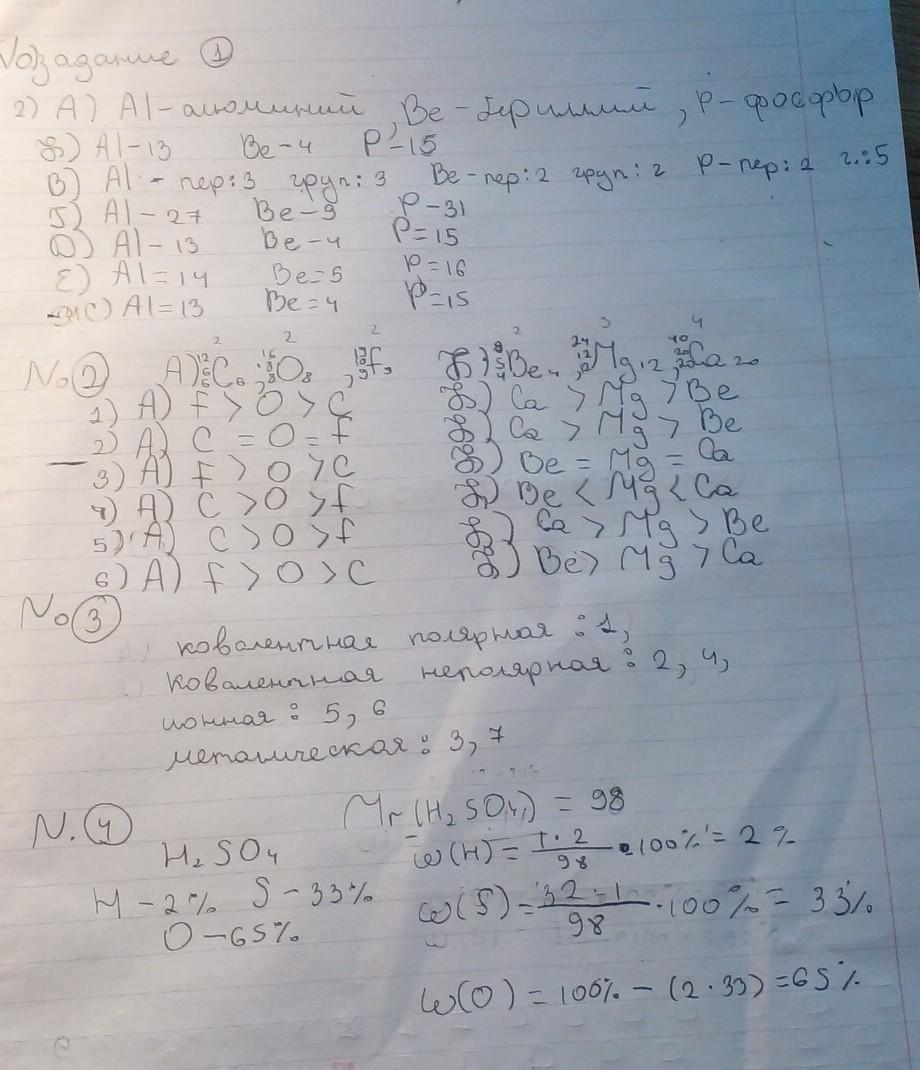 Nозадание ①
2) А) Al-алюминий, Be-бериллий, P-фосфор
Б) Al-13 Be-4 P-15
В) Al - пер:3 груп:3 Be-пер:2 груп:2 P-пер:2 г.:5
Al-27 Be-9 P-31
Al-13 Be-4 P=15
Е) Al=14 Be=5 P=16
Al=13 Be=4 P=15
No② А) C₆, O₈, f₉ Б) Be₄, Mg₁₂, Ca₂₀
1) А) f > O > C Б) Ca > Mg > Be
2) А) C = O = f Б) Ca > Mg > Be
3) А) f > O > C Б) Be = Mg = Ca
4) А) C > O > f Б) Be < Mg < Ca
5) А) C > O > f Б) Ca > Mg > Be
6) А) f > O > C Б) Be > Mg > Ca
No③
ковалентная полярная : 1,
ковалентная неполярная : 2, 4,
ионная : 5, 6
металическая : 3, 7
N.④ Mr(H₂SO₄) = 98
H₂SO₄ ω(H) = 1·2/98 · 100% = 2%
H-2% S-33% ω(S) = 32·1/98 · 100% = 33%
O-65%
ω(O) = 100% - (2·33) = 65%